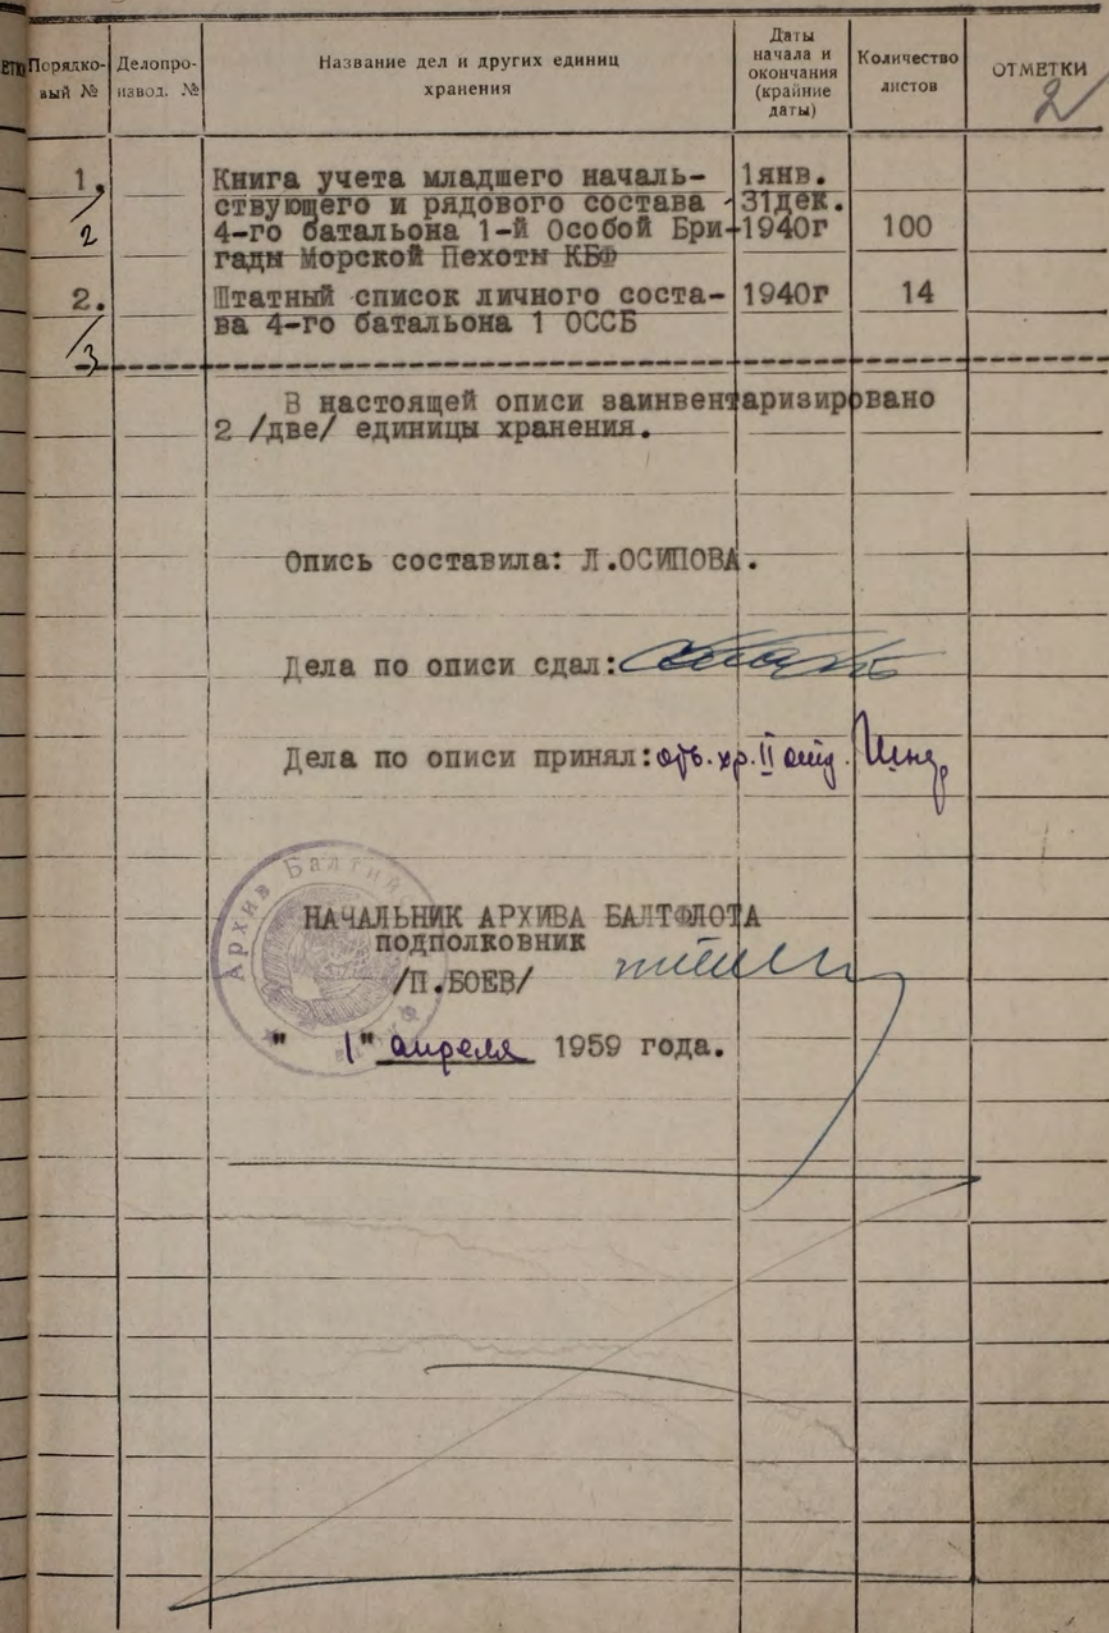 Порядко-
вый №
Делопро-
извод. №
Название дел и других единиц
хранения
Даты
начала и
окончания
(крайние
даты)
Количество
листов
ОТМЕТКИ
2
1.
/2
Книга учета младшего началь-
ствующего и рядового состава
4-го батальона 1-й Особой Бри-
гады Морской Пехоты КБФ
1янв.
31дек.
1940г
100
2.
/3
Штатный список личного соста-
ва 4-го батальона 1 ОССБ
1940г
14
В настоящей описи заинвентаризировано
2 /две/ единицы хранения.
Опись составила: Л.ОСИПОВА.
Дела по описи сдал:
Дела по описи принял: отв. хр. II отд.
Архив Балтийс
НАЧАЛЬНИК АРХИВА БАЛТФЛОТА
ПОДПОЛКОВНИК
/П.БОЕВ/
" 1" апреля 1959 года.